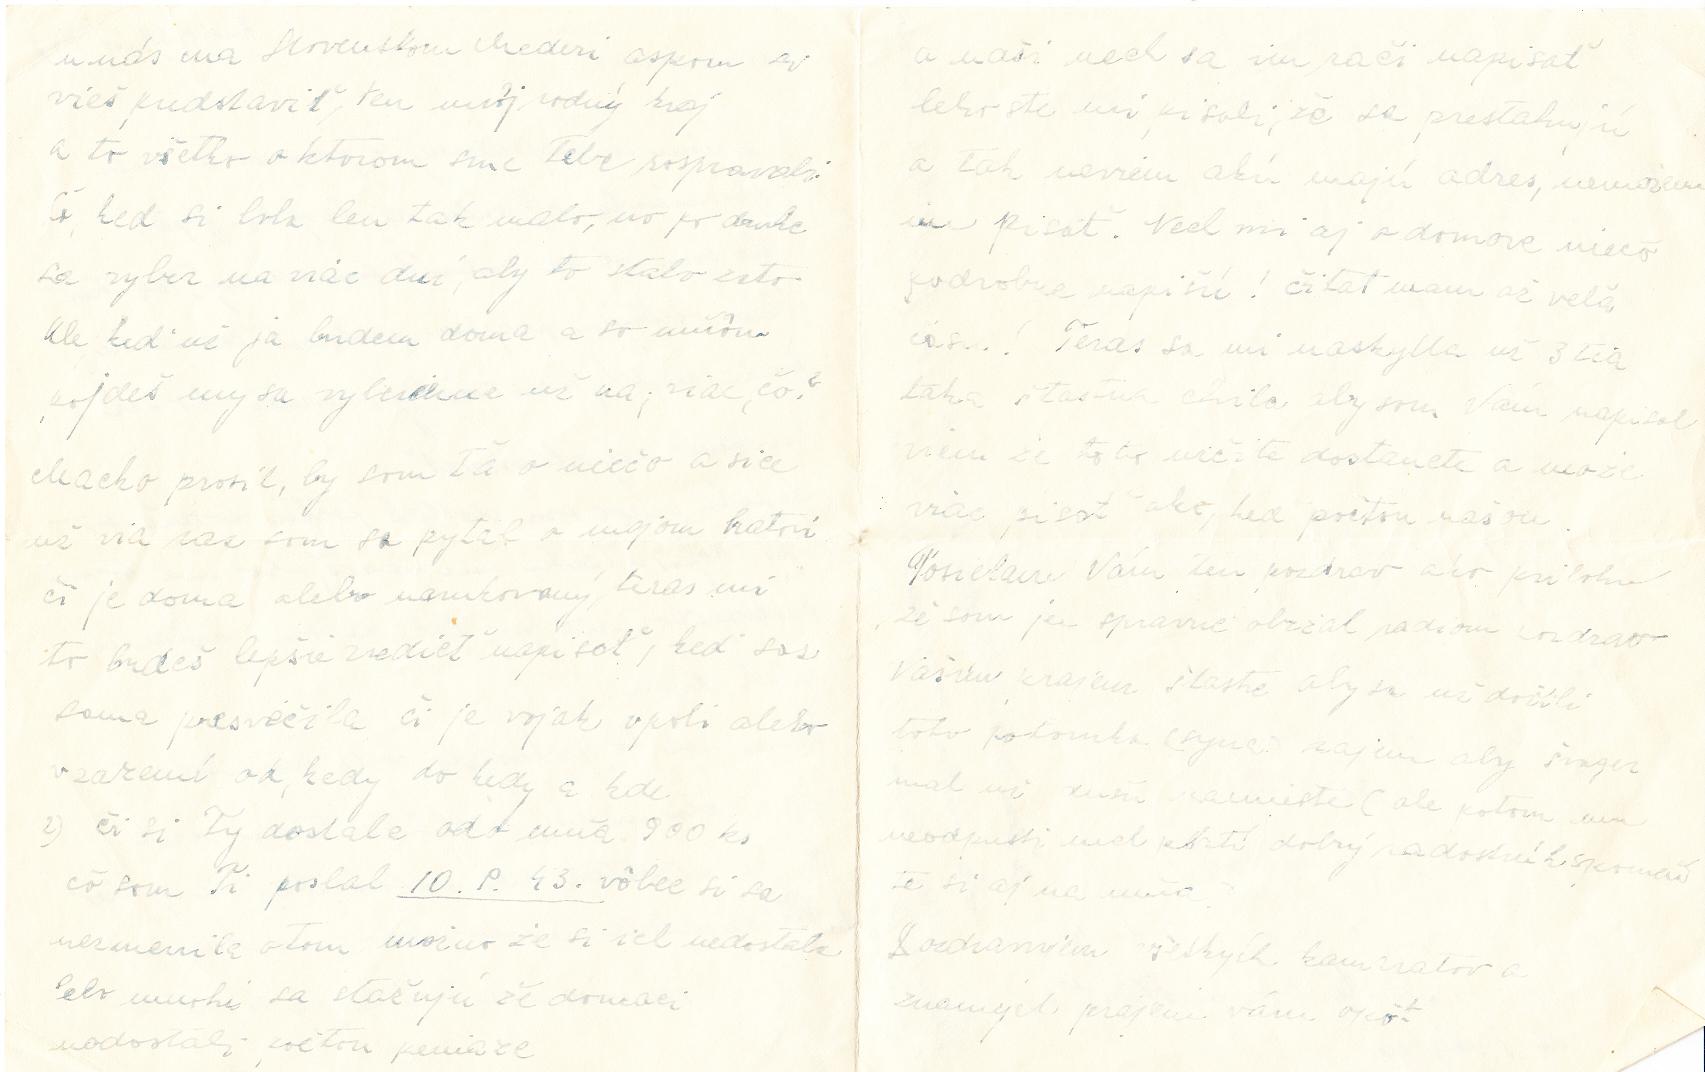 u nás na Slovenskom Mederi aspom si
vieš predstaviť, ten môj rodný kraj
a to všetko o ktorom sme Tebe rospravali
Čo, keď si bola len tak malo, no po druhe
sa vyber na viác dní, aby to stalo zato
Ale keď už ja budem doma a so mnou
pojdeš my sa vyberieme už na viac, čo?
Macko prosil, by som Ťa o niečo a sice
už via raz som sa pytal o mojom bratovi
či je doma alebo narukovaný, teras mi
to budeš lepšie vedieť napisať, keď sas
sama presvečila či je vojak vpoli alebo
vzazemí od kedy do kedy a kde
2) či si Ty dostala odo mňa 900 ks
čo som Ti poslal 10. 8. 43. vôbec si sa
nezmenila otom možno že si ich nedostala
lebo mnohí sa stažujú že domaci
nedostali poštou peniaze
a naši nech sa im rači napisať
lebo ste mi pisali, že sa prestahujú
a tak neviem akú majú adres, nemožem
im pisať. Nech mi aj o domove niečo
podrobne napišu! čitať mam až veľa
času..! Teras sa mi naskytla už 3 tia
taka šťastna chvila aby som Vám napisal
viem že toto určite dostanete a može
viac pisať ako, keď poštou našou.
Posielam Vám ten pozdrav ako prilohu
že som jeu spravne obržal radiom pozdrav
Vašim prajem šťastie aby sa už dožili
toho potomka (syna) prajem aby švager
mal už dušu namieste (ale potom mu
neodpusti nech poštī dobrý radostných spomeň
te si aj na mňa?
Pozdravujem všetkých kamratov a
znamých prajem vám opäť